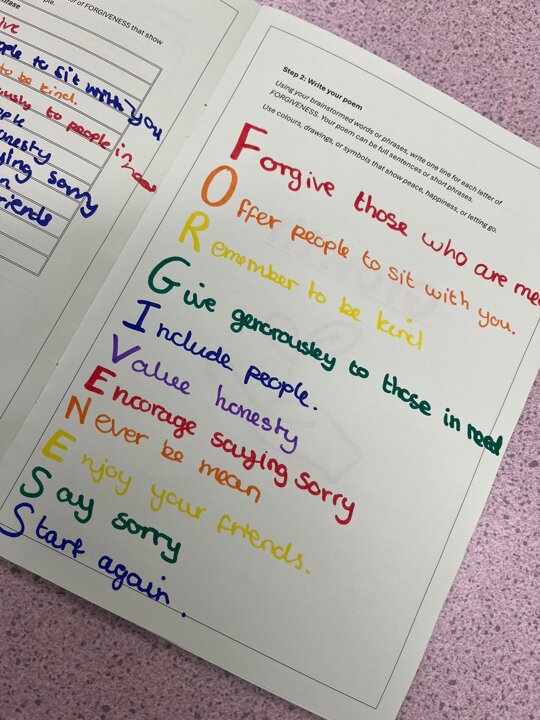 of FORGIVENESS that show
people to sit with you
to be kind.
to people in need
people
honesty
saying sorry
friends
Step 2: Write your poem
Using your brainstormed words or phrases, write one line for each letter of
FORGIVENESS. Your poem can be full sentences or short phrases.
Use colours, drawings, or symbols that show peace, happiness, or letting go.
Forgive those who are
Offer people to sit with you.
Remember to be kind
Give generousley to those in need
Include people.
Value honesty
Encorage saying sorry
Never be mean
Enjoy your friends.
Say sorry
Start again.